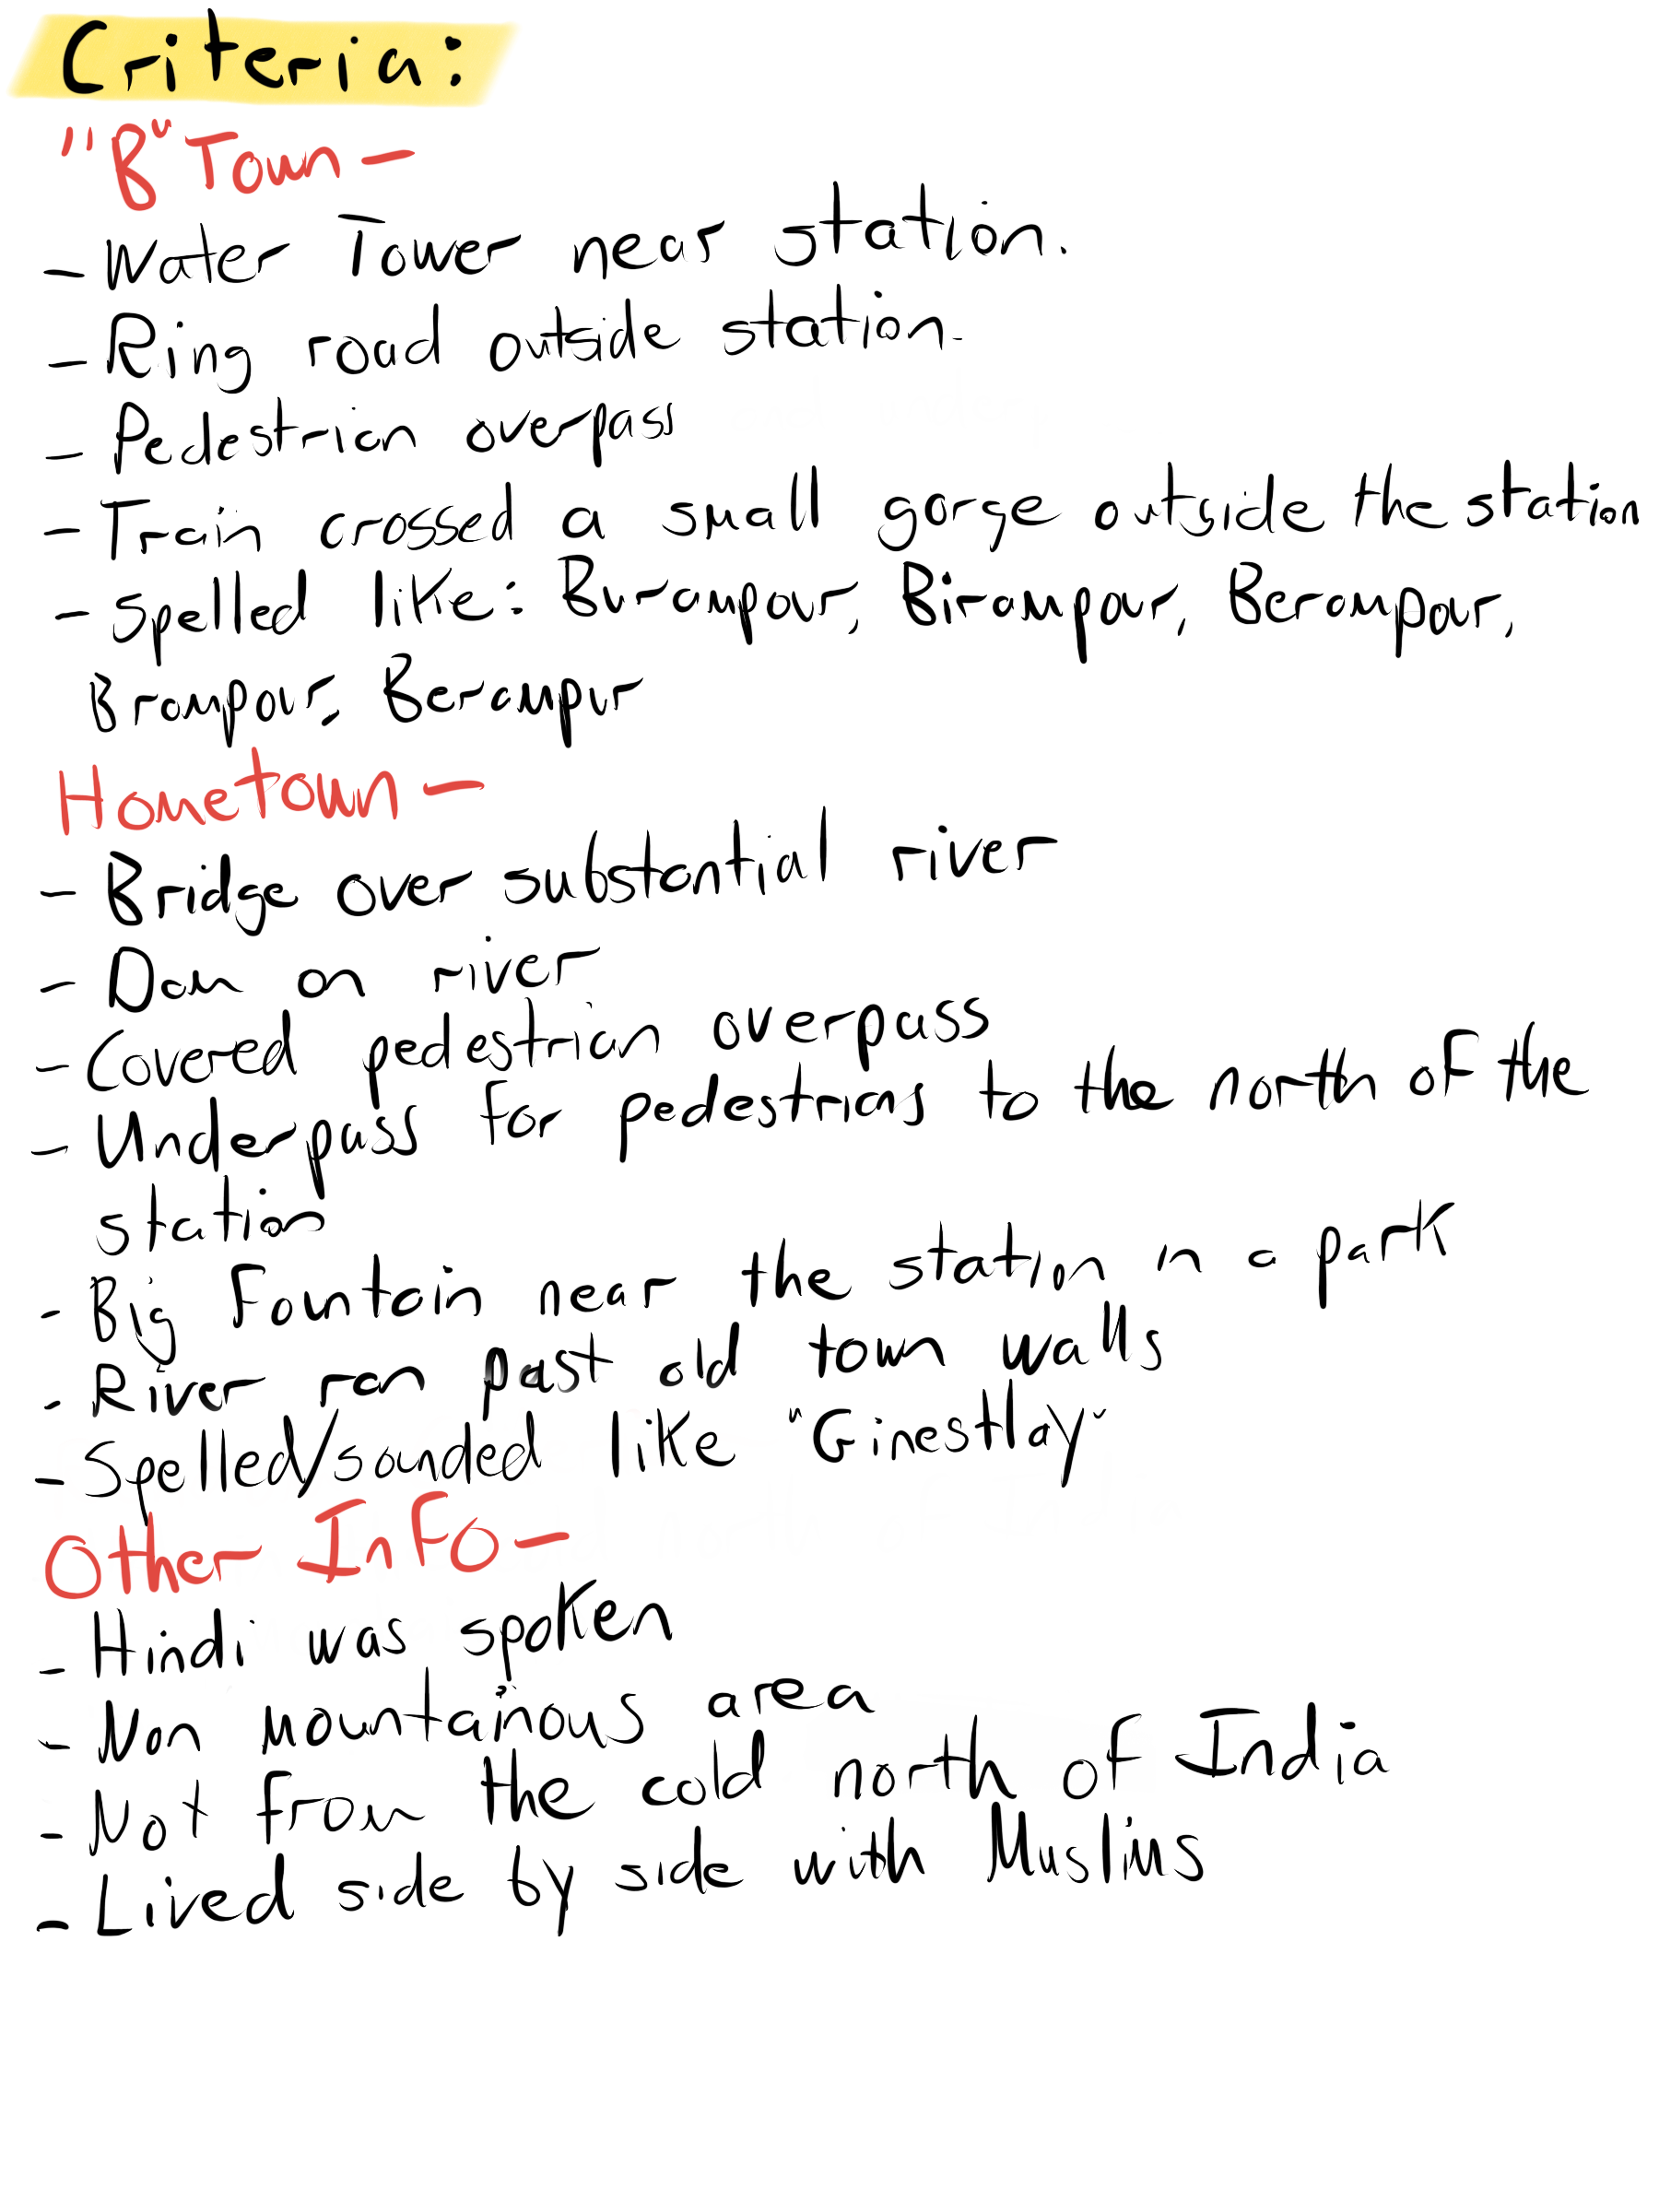 Criteria:
"B" Town -
- Water Tower near station.
- Ring road outside station.
- Pedestrian overpass
- Train crossed a small gorge outside the station
- Spelled like: Burampour, Birampour, Berampour,
Brampour, Berampur
Hometown -
- Bridge over substantial river
- Dam on river
- Covered pedestrian overpass
- Underpass for pedestrians to the north of the
station
- Big Fountain near the station in a park
- River ran past old town walls
- Spelled/sounded like "Ginestlay"
Other Info -
- Hindi was spoken
- Non mountainous area
- Not from the cold north of India
- Lived side by side with Muslims